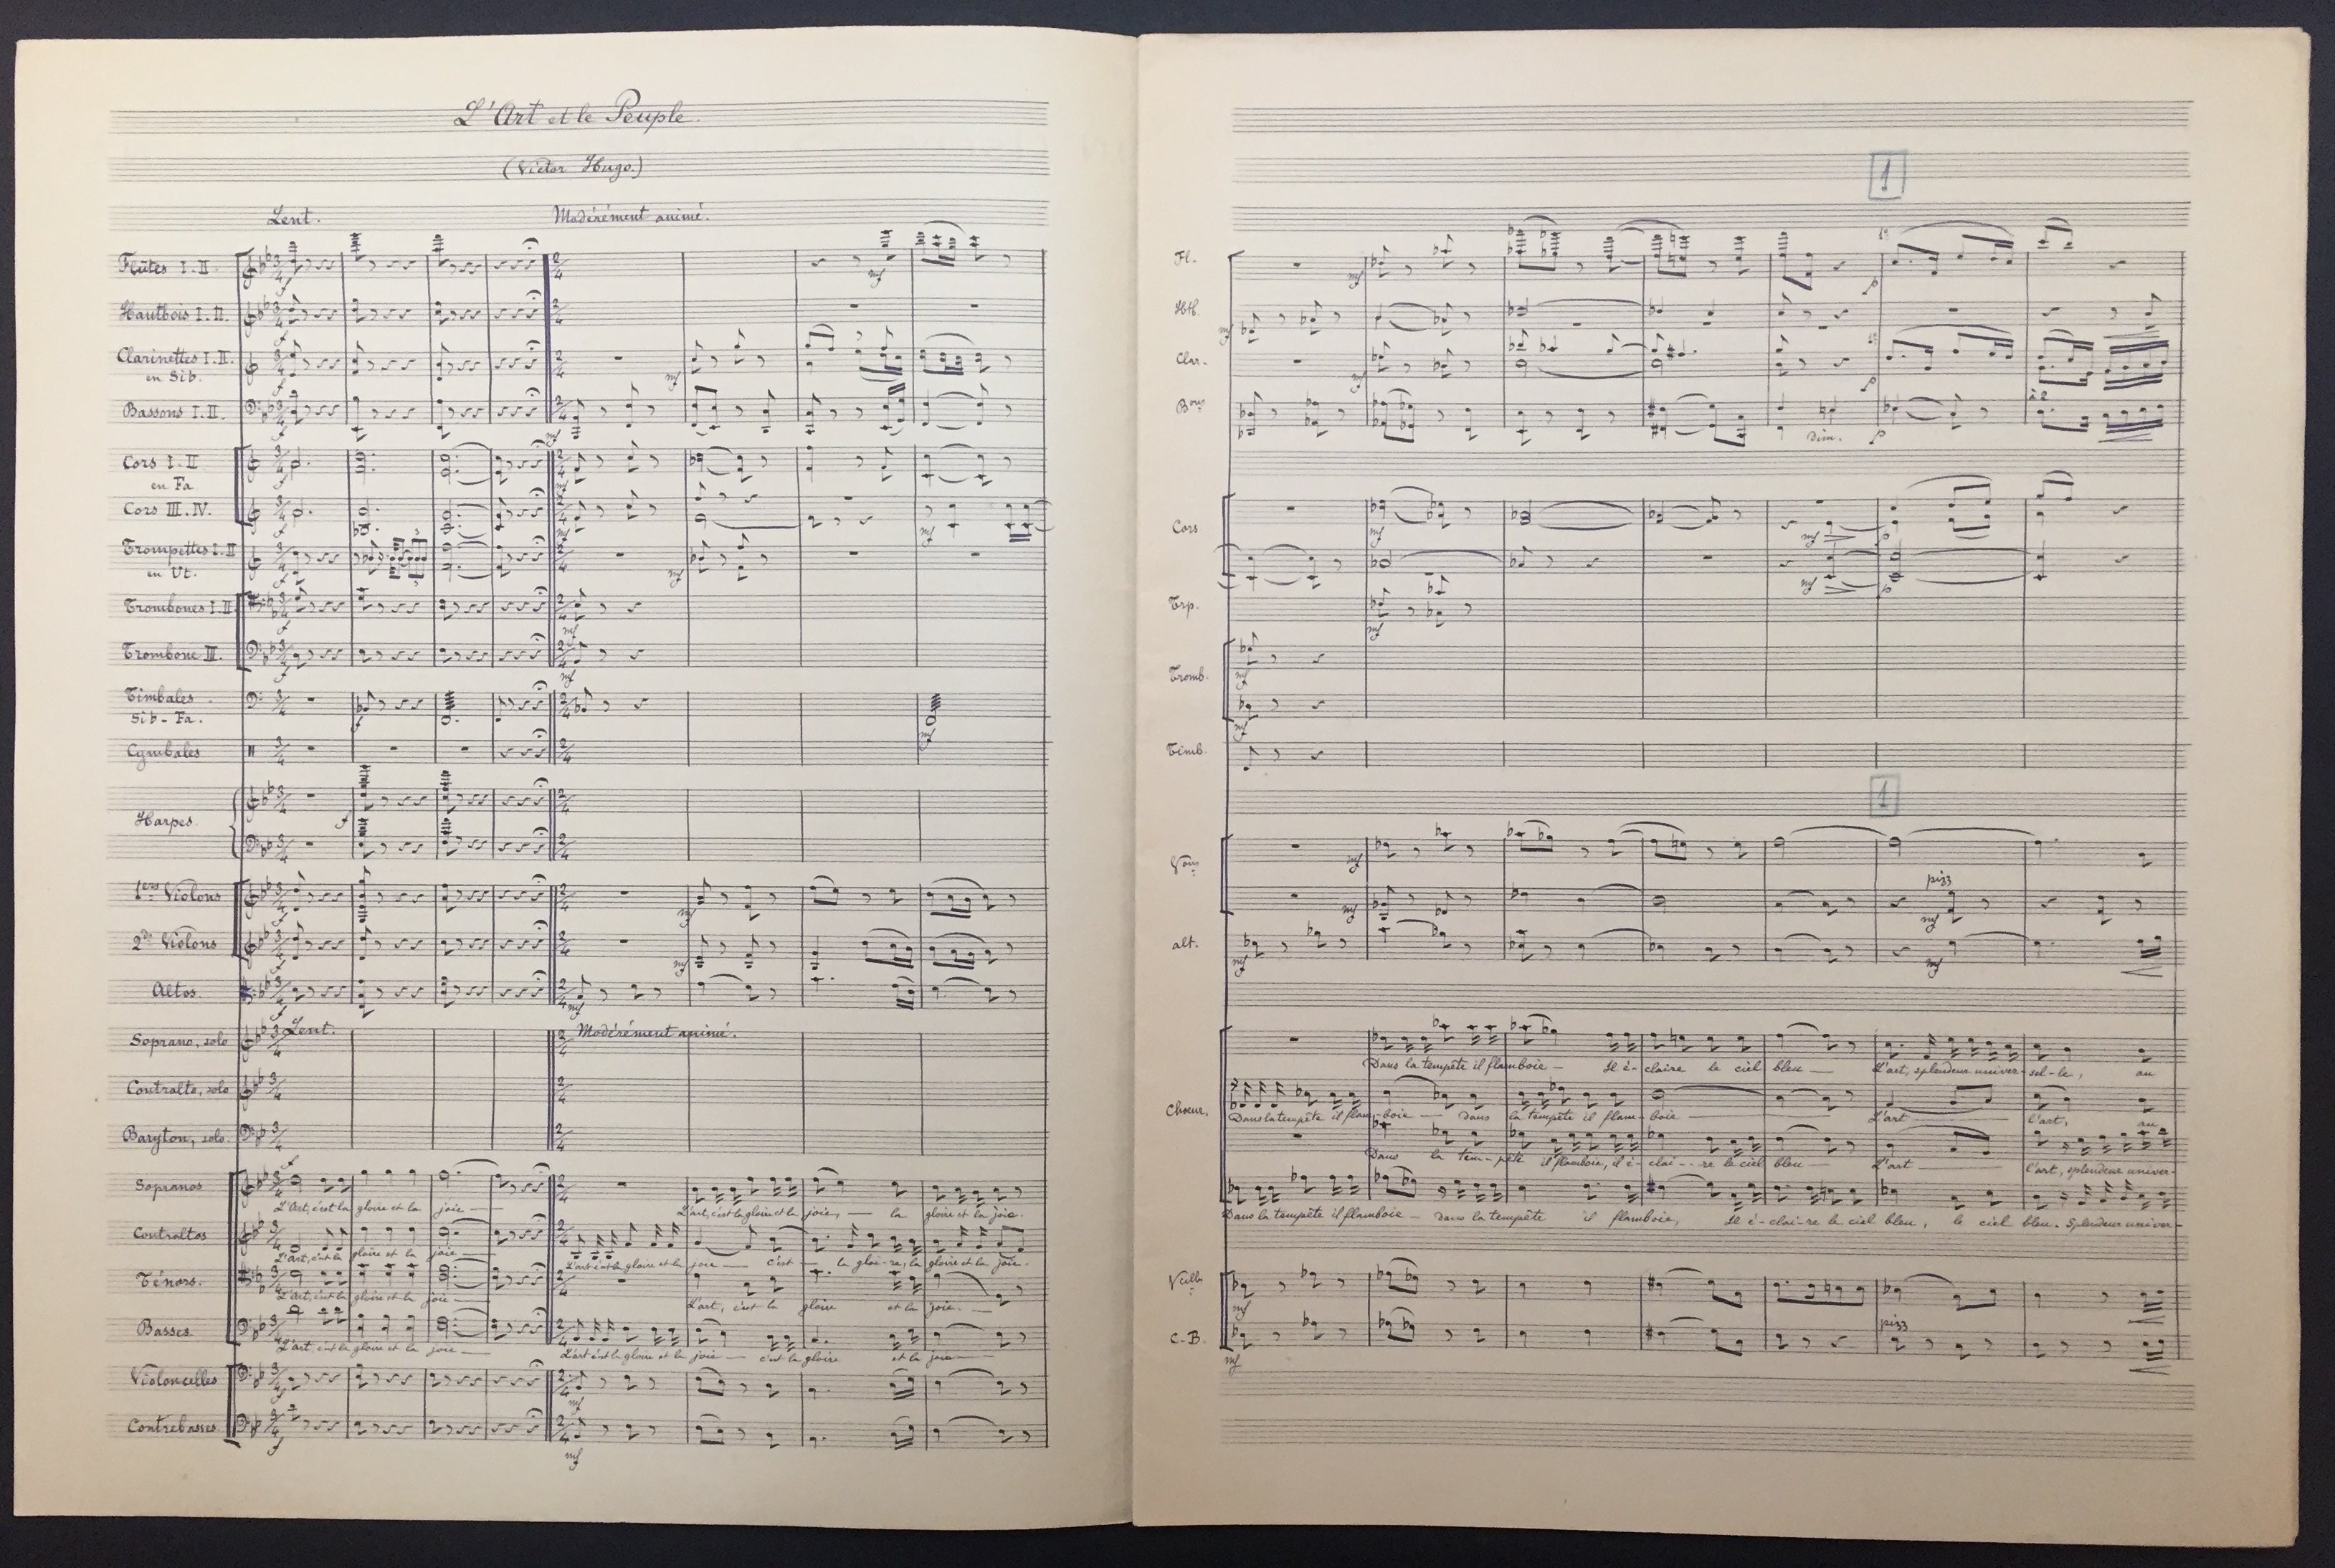 L'Art et le Peuple.
(Victor Hugo.)
Lent. Modérément animé.
Flûtes I.II.
Hautbois I.II.
Clarinettes I.II.
en Sib.
Bassons I.II.
Cors I.II
en Fa
Cors III.IV.
Trompettes I.II
en Ut.
Trombones I.II
Trombone III.
Timbales
Sib - Fa.
Cymbales
Harpes
1ers Violons
2ds Violons
Altos.
Lent. Modérément animé.
Soprano, solo
Contralto, solo
Baryton, solo.
Sopranos
L'Art, c'est la gloire et la joie — L'art, c'est la gloire et la joie, — la gloire et la joie.
Contraltos
L'art, c'est la gloire et la joie — L'art c'est la gloire et la joie — c'est — la gloi-re, la gloire et la joie.
Ténors.
L'art, c'est la gloire et la joie — L'art, c'est la gloire et la joie. —
Basses.
L'art, c'est la gloire et la joie — L'art c'est la gloire et la joie — c'est la gloire et la joie —
Violoncelles
Contrebasses.
1
Fl.
Htb.
Clar.
Bons
dim.
à 2
Cors
Trp.
Tromb.
Timb.
1
Vons
pizz
alt.
Chœur.
Dans la tempête il flamboie — Il é- claire le ciel bleu — L'art, splendeur univer-sel-le, au
Dans la tempête il flam-boie — Dans la tempête il flam-boie — L'art — l'art, au
Dans la tem-pête il flamboie, il é-clai--re le ciel bleu — L'art — l'art, splendeur univer-
Dans la tempête il flamboie — dans la tempête il flamboie, Il é-clai-re le ciel bleu, le ciel bleu. Splendeur univer-
Vcelles
C-B.
pizz